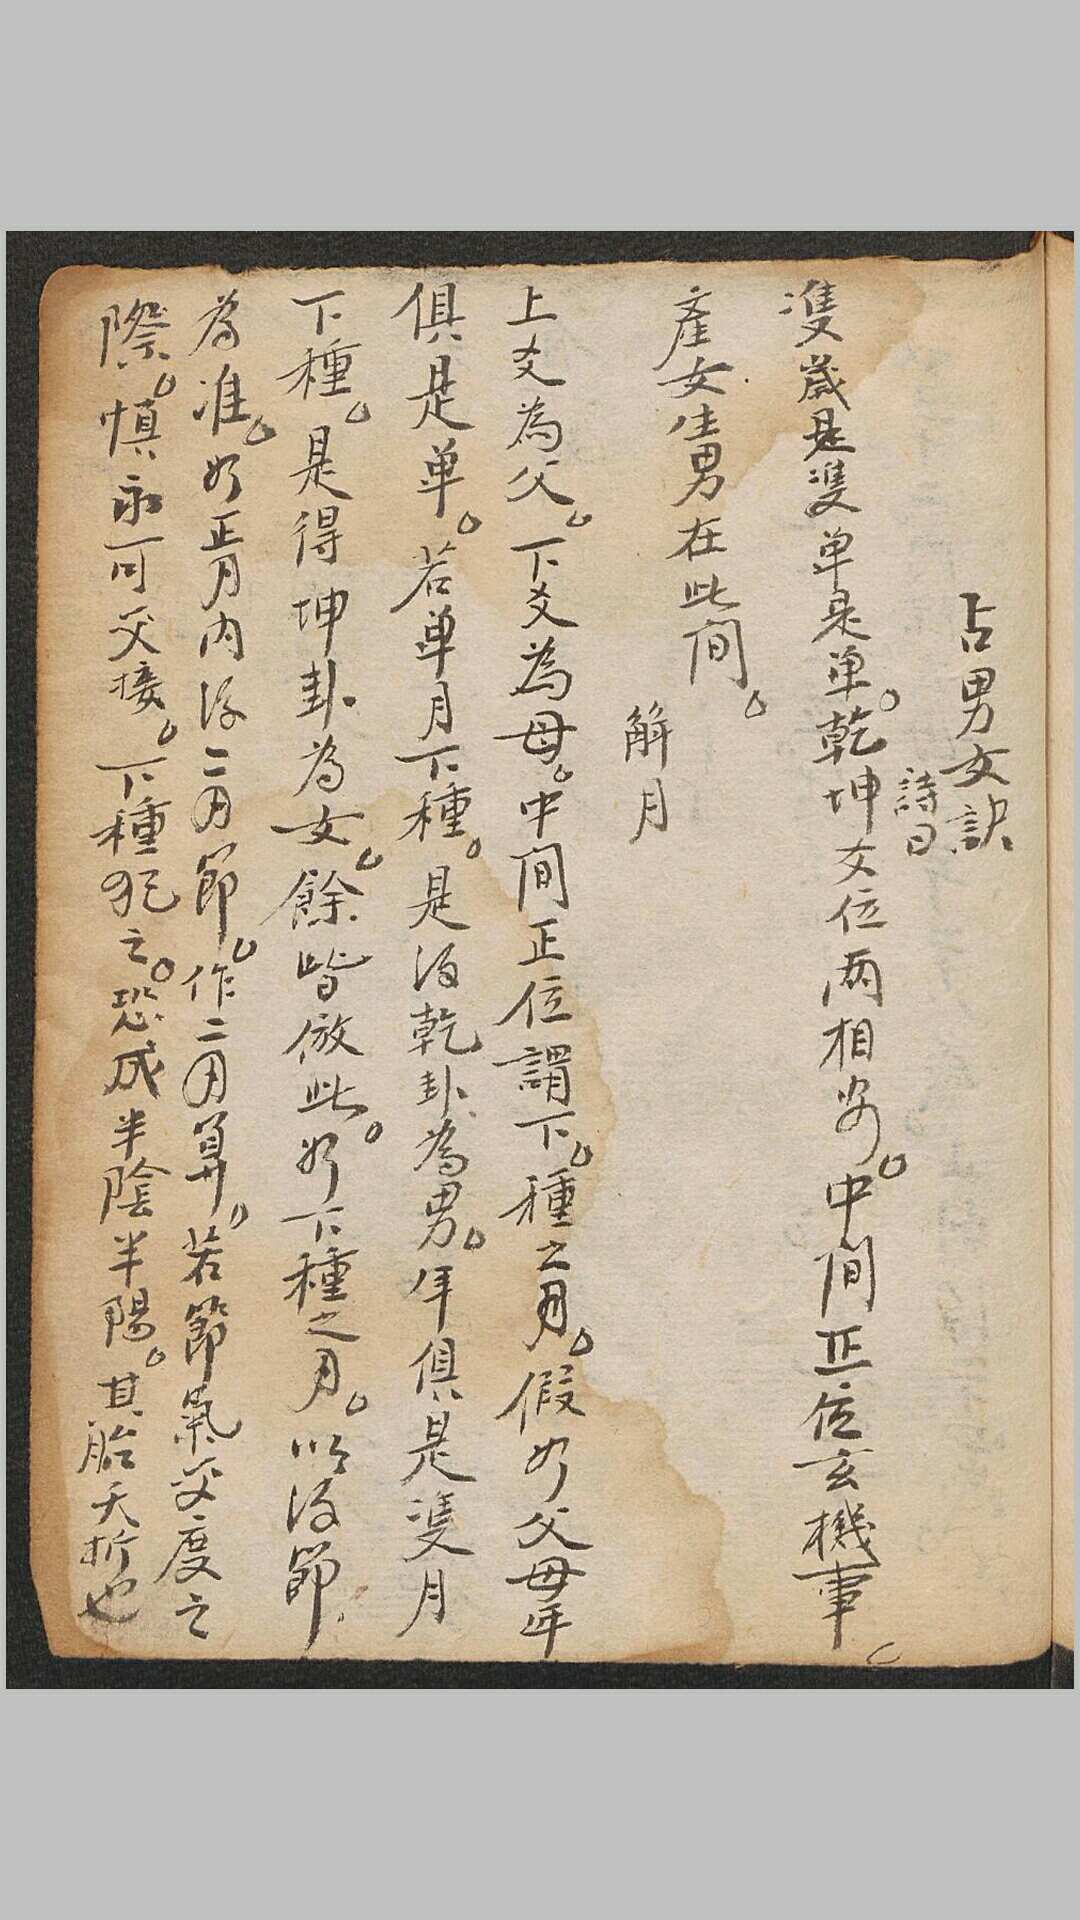 占男女訣
詩曰
隻歲是隻单是单。乾坤女位两相安。中間正位玄機事。
產女生男在此間。
解月
上爻為父。下爻為母。中間正位謂下。種之月。假如父母年
俱是单。若单月下種。是得乾卦為男。年俱是隻月
下種。是得坤卦為女。餘皆倣此。如下種之月。以得節
為准。如正月内得二月節。作二月算。若節氣交度之
際。慎 可交接。下種犯之。恐成半陰半陽。其胎夭折也